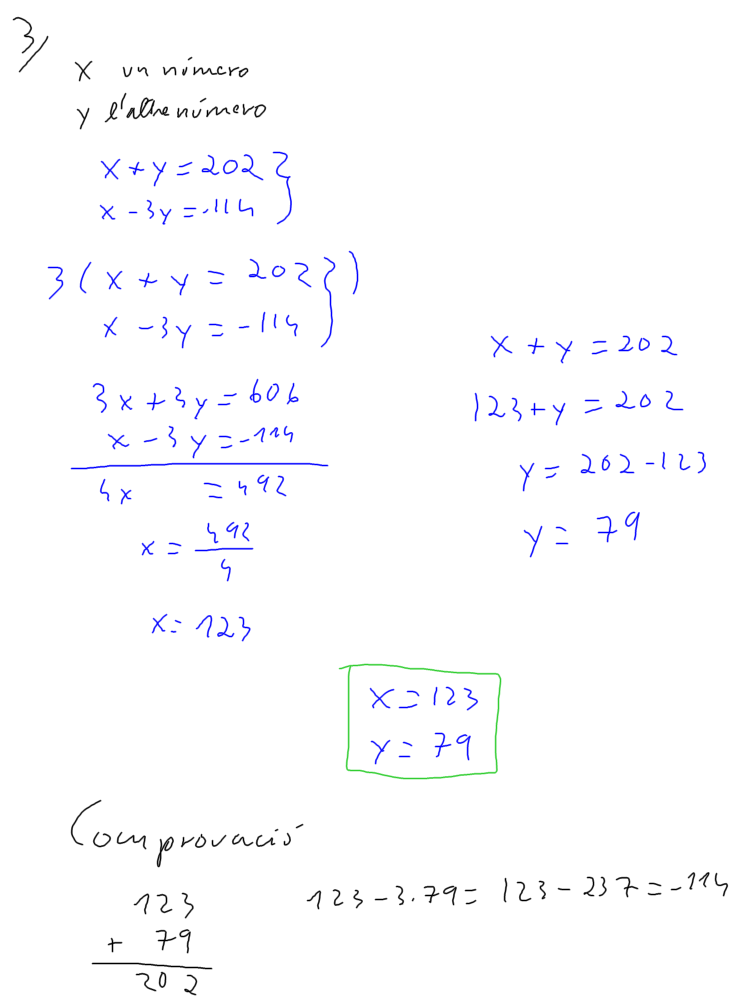 3/
x un número
y l'altre número
x + y = 202 }
x - 3y = -114
3 ( x + y = 202 } )
x - 3y = -114
3x + 3y = 606
x - 3y = -114
4x = 492
x = 492/4
x = 123
x + y = 202
123 + y = 202
y = 202 - 123
y = 79
x = 123
y = 79
Comprovació
123
+ 79
202
123 - 3·79 = 123 - 237 = -114